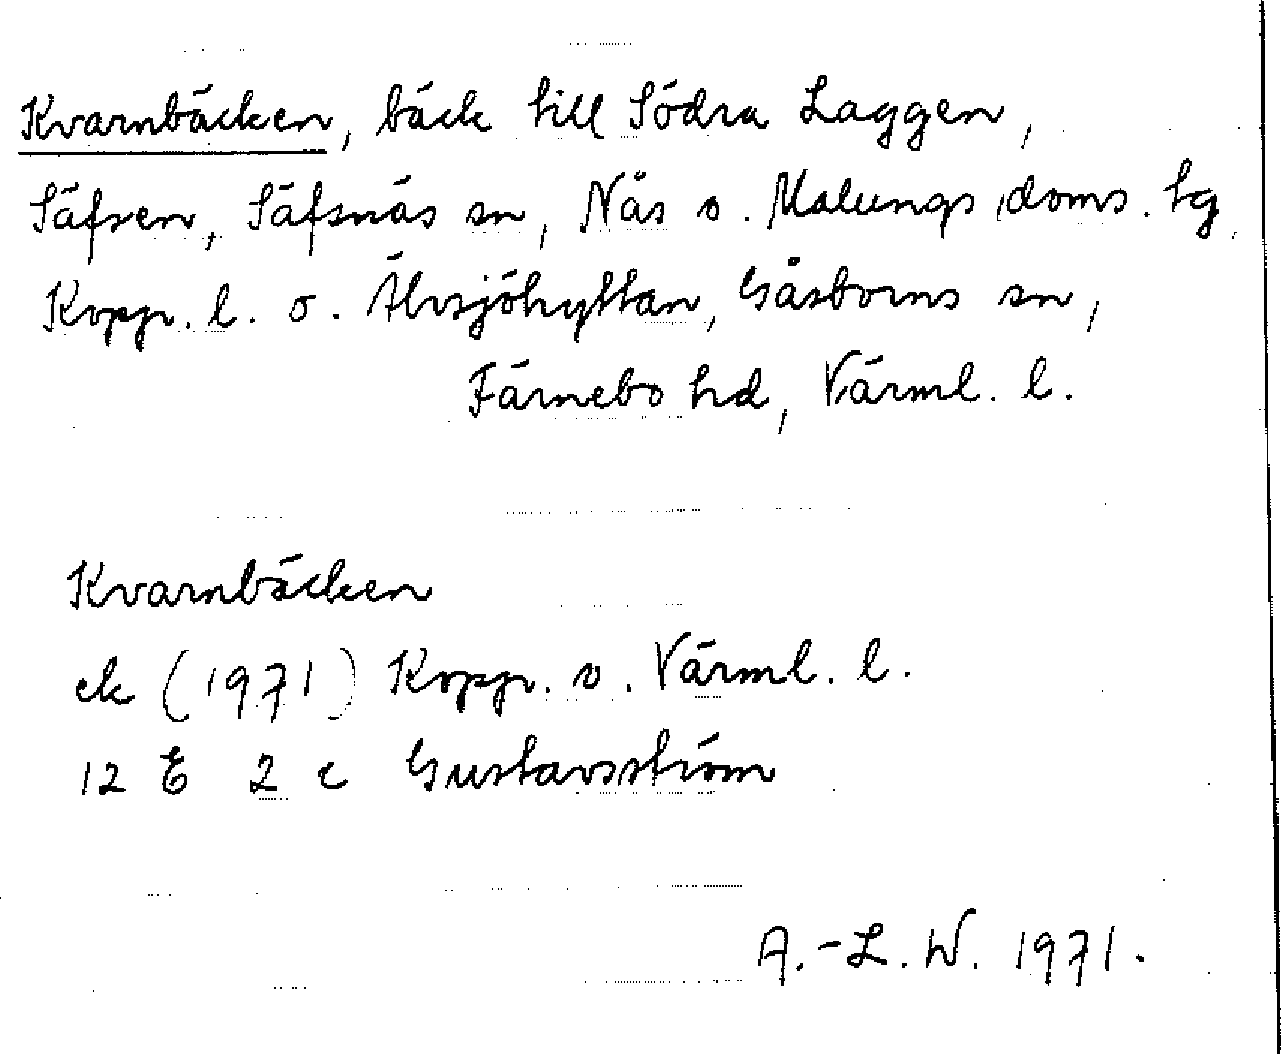 Kvarnbäcken, bäck till Södra Laggen,
Säfsen, Säfsnäs sn, Nås o. Malungs doms. tg
Kopp. l. o. Älvsjöhyttan, Gåsborns sn,
Färnebo hd, Värml. l.
Kvarnbäcken
ek (1971) Kopp. o. Värml. l.
12 E 2 c Gustavsström
A.-L. W. 1971.